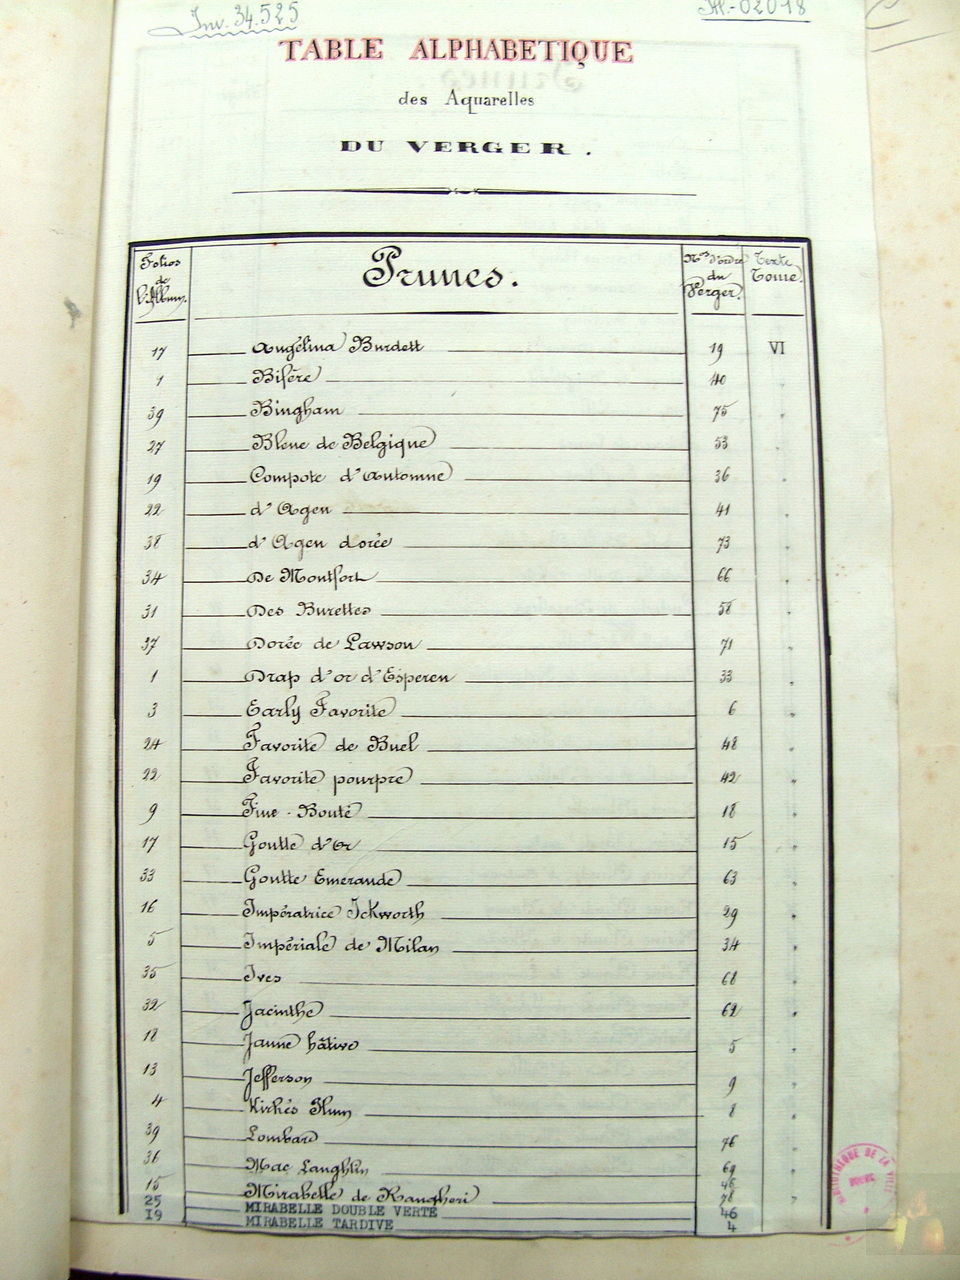 Inv. 34.525
TABLE ALPHABETIQUE
des Aquarelles
DU VERGER.
Folios de l'Album. Prunes. Nos d'ordre du Verger. Texte Tome.
17 Angélina Burdett 19 VI
1 Bifère 40 "
39 Bingham 75 "
27 Bleue de Belgique 53 "
19 Compote d'Automne 36 "
22 d'Agen 41 "
38 d'Agen dorée 73 "
34 De Montfort 66 "
31 Des Burettes 58 "
37 Dorée de Lawson 71 "
1 Drap d'or d'Esperen 33 "
3 Early Favorite 6 "
24 Favorite de Buel 48 "
22 Favorite pourpre 42 "
9 Fine-Bonte 18 "
17 Goutte d'Or 15 "
33 Goutte Emeraude 63 "
16 Impératrice Ickworth 29 "
5 Impériale de Milan 34 "
35 Ives 68 "
32 Jacinthe 62 "
18 Jaune hâtive 5 "
13 Jefferson 9 "
4 Kirkés Plum 8 "
39 Lombard 76 "
36 Mac Langhlin 69 "
15 Mirabelle de Rangheri "
25 MIRABELLE DOUBLE VERTE 46
19 MIRABELLE TARDIVE 4
BIBLIOTHÈQUE DE LA VILLE